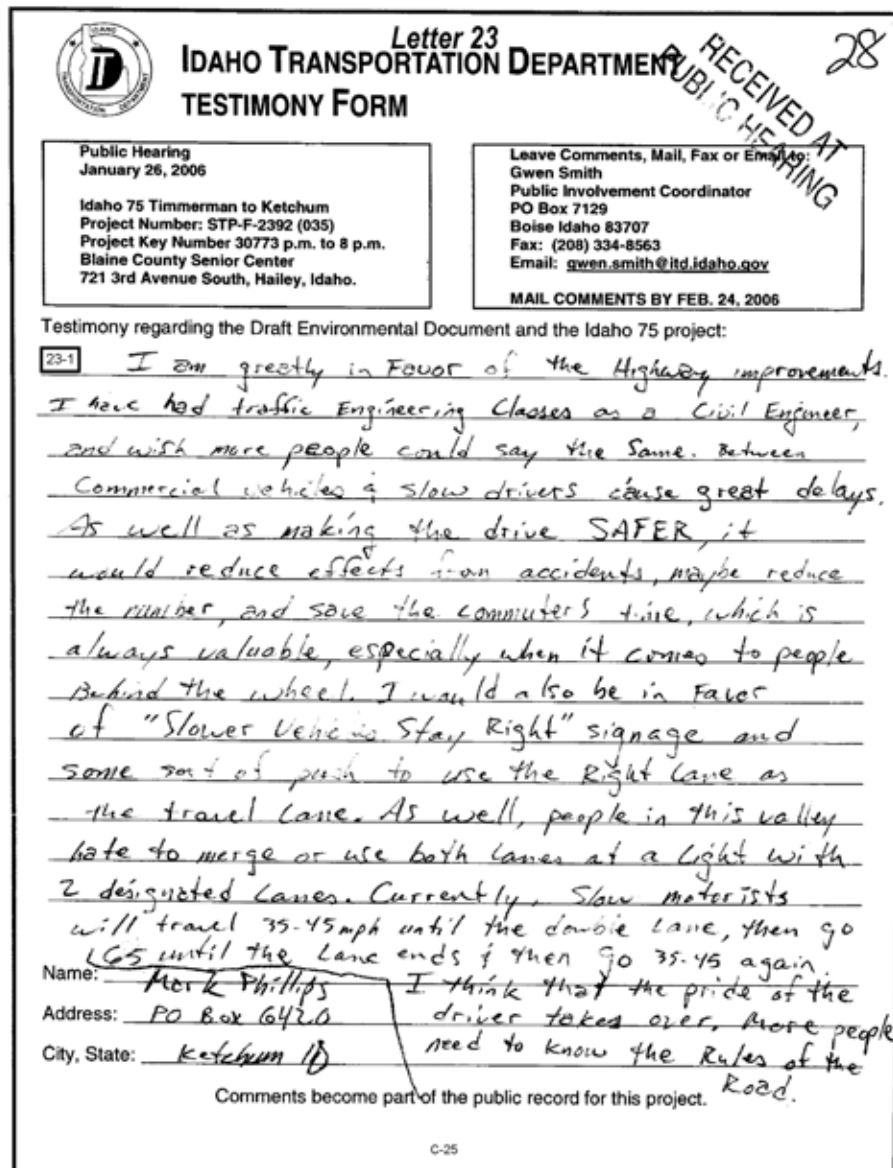 Letter 23
28
IDAHO TRANSPORTATION DEPARTMENT
TESTIMONY FORM
RECEIVED AT
PUBLIC HEARING
IDAHO
TRANSPORTATION DEPARTMENT
Public Hearing
January 26, 2006
Idaho 75 Timmerman to Ketchum
Project Number: STP-F-2392 (035)
Project Key Number 30773 p.m. to 8 p.m.
Blaine County Senior Center
721 3rd Avenue South, Hailey, Idaho.
Leave Comments, Mail, Fax or Email to:
Gwen Smith
Public Involvement Coordinator
PO Box 7129
Boise Idaho 83707
Fax: (208) 334-8563
Email: gwen.smith@itd.idaho.gov
MAIL COMMENTS BY FEB. 24, 2006
Testimony regarding the Draft Environmental Document and the Idaho 75 project:
23-1 I am greatly in Favor of the Highway improvements.
I have had traffic Engineering Classes as a Civil Engineer,
and wish more people could say the Same. Between
Commercial vehicles & slow drivers cause great delays.
As well as making the drive SAFER, it
would reduce effects from accidents, maybe reduce
the number, and save the commuters time, which is
always valuable, especially when it comes to people
Behind the wheel. I would also be in Favor
of "Slower Vehicles Stay Right" signage and
some sort of push to use the Right Lane as
the travel Lane. As well, people in this valley
hate to merge or use both Lanes at a Light with
2 designated Lanes. Currently, Slow motorists
will travel 35-45 mph until the double Lane, then go
65 until the Lane ends & then go 35-45 again.
Name: Mark Phillips
I think that the pride of the
Address: PO Box 6420
driver takes over. More people
City, State: Ketchum ID
need to know the Rules of the
Road.
Comments become part of the public record for this project.
C-25